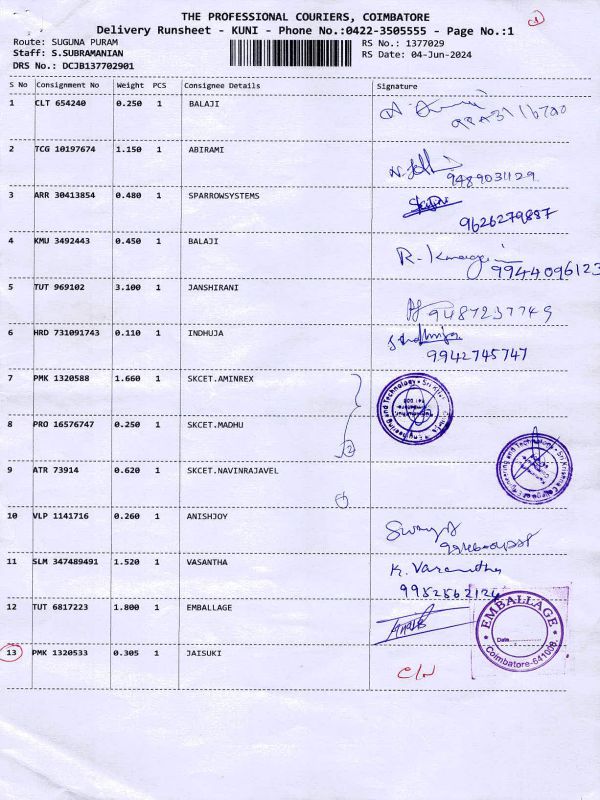 THE PROFESSIONAL COURIERS, COIMBATORE
Delivery Runsheet - KUNI - Phone No.:0422-3505555 - Page No.:1
Route: SUGUNA PURAM RS No.: 1377029
Staff: S.SUBRAMANIAN RS Date: 04-Jun-2024
DRS No.: DCJB137702901
S No Consignment No Weight PCS Consignee Details Signature
1 CLT 654240 0.250 1 BALAJI
2 TCG 10197674 1.150 1 ABIRAMI
9489031129
3 ARR 30413854 0.480 1 SPARROWSYSTEMS
9626279887
4 KMU 3492443 0.450 1 BALAJI
9944096123
5 TUT 969102 3.100 1 JANSHIRANI
9487237749
6 HRD 731091743 0.110 1 INDHUJA
9942745747
7 PMK 1320588 1.660 1 SKCET.AMINREX
8 PRO 16576747 0.250 1 SKCET.MADHU
9 ATR 73914 0.620 1 SKCET.NAVINRAJAVEL
10 VLP 1141716 0.260 1 ANISHJOY
11 SLM 347489491 1.520 1 VASANTHA
K. Vasantha
12 TUT 6817223 1.800 1 EMBALLAGE
EMBALLAGE
Date
Coimbatore-641008.
13 PMK 1320533 0.305 1 JAISUKI